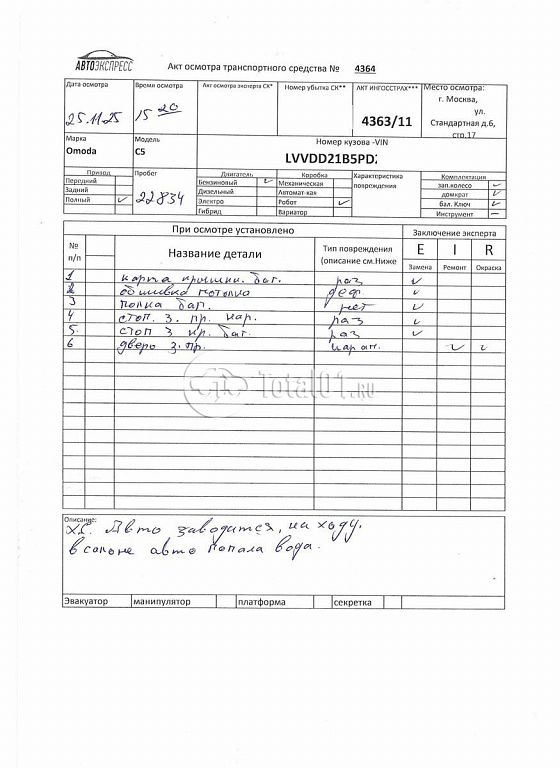 АВТОЭКСПРЕСС
Акт осмотра транспортного средства № 4364
Дата осмотра Время осмотра Акт осмотра эксперта СК* Номер убытка СК** АКТ ИНГОССТРАХ*** Место осмотра:
25.11.25 15 20 4363/11 г. Москва,
ул.
Стандартная д.6,
стр.17
Марка Модель Номер кузова -VIN
Omoda C5 LVVDD21B5PD
Привод Пробег Двигатель Коробка Характеристика повреждения Комплектация
Передний Бензиновый ✓ Механическая зап.колесо ✓
Задний Дизельный Автомат-кая домкрат ✓
Полный ✓ 22834 Электро Робот ✓ бал. Ключ ✓
Гибрид Вариатор Инструмент –
При осмотре установлено Заключение эксперта
№ п/п Название детали Тип повреждения (описание см.Ниже E I R
Замена Ремонт Окраска
1 карта крышки баг. раз ✓
2 обшивка потолка деф. ✓
3 полка баг. нет ✓
4 стоп. з. пр. нар. раз ✓
5. стоп з кр. баг. раз ✓
6 дверь з. пр. царап. ✓ ✓
Total01.RU
Описание:
Авто заводится, на ходу.
в салоне авто попала вода.
Эвакуатор манипулятор платформа секретка